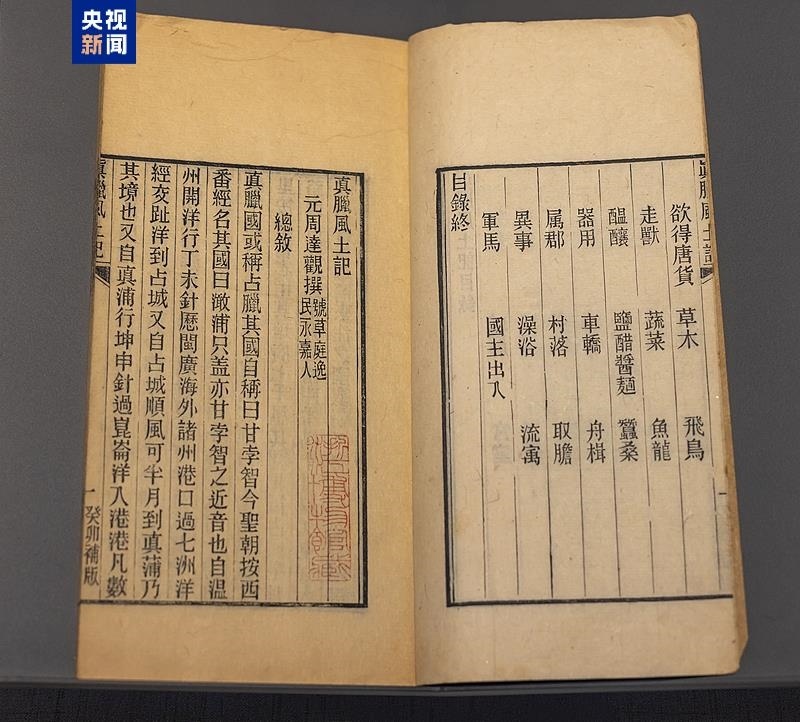 央视
新闻
眞臘風土記
一
欲得唐貨 草木 飛鳥
走獸 蔬菜 魚龍
醖釀 鹽醋醬麵 蠶桑
器用 車轎 舟楫
属郡 村落 取膽
異事 澡浴 流寓
軍馬 國主出入
目錄終
眞臘風土記
元周達觀撰 號草庭逸
民永嘉人
總敘
眞臘國或稱占臘其國自稱曰甘孛智今聖朝按西
番經名其國曰澉浦只盖亦甘孛智之近音也自温
州開洋行丁未針歷閩廣海外諸州港口過七洲洋
經交趾洋到占城又自占城順風可半月到眞蒲乃
其境也又自眞蒲行坤申針過崑崙洋入港港凡數
眞臘風土記
一
癸卯補版